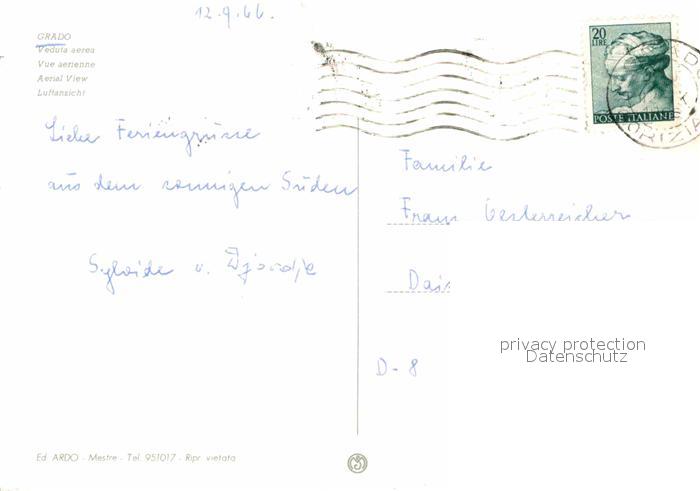 12.9.66.
GRADO
Veduta aerea
Vue aerienne
Aerial View
Luftansicht
20
LIRE
POSTE ITALIANE
GORIZIA
Liebe Feriengrüsse
aus dem sonnigen Süden
Familie
Franz Oesterreicher
D-8
privacy protection
Datenschutz
Ed. ARDO - Mestre - Tel. 951017 - Ripr. vietata